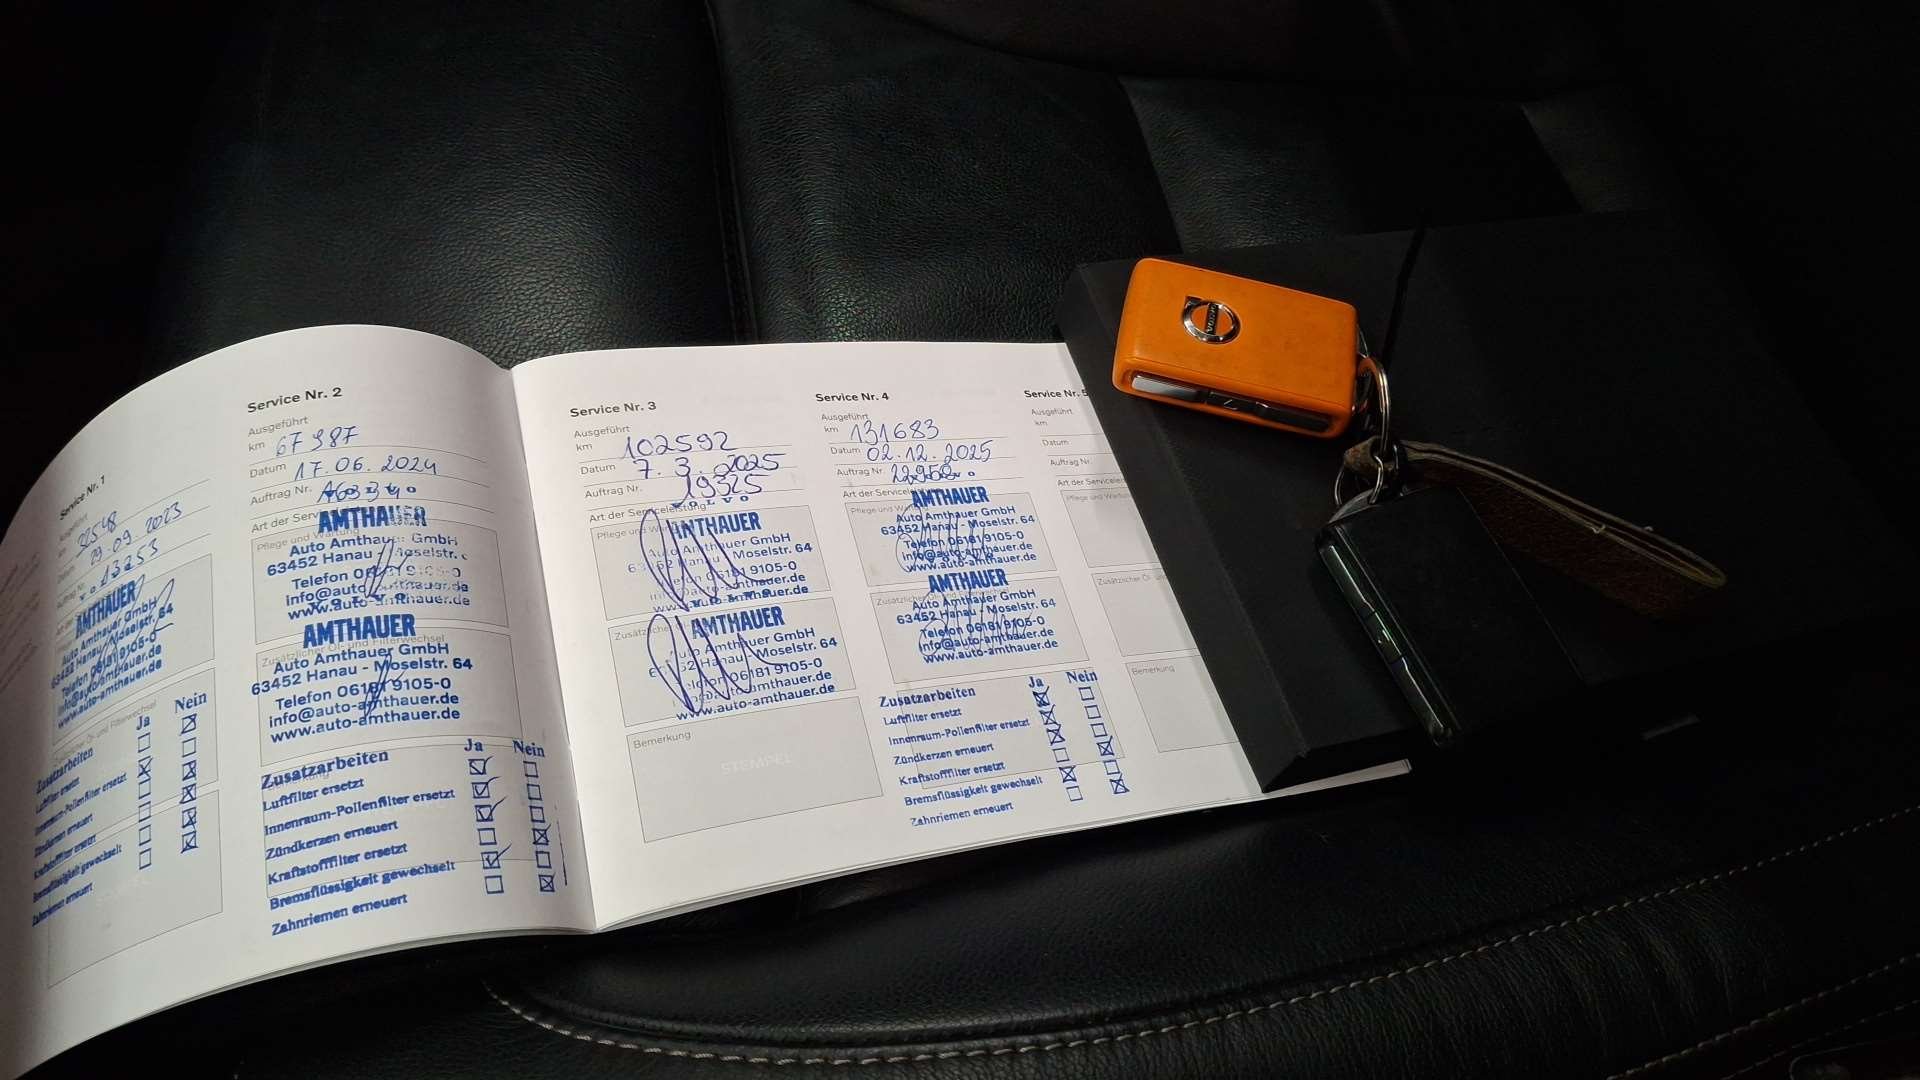 Service Nr. 1
Ausgeführt
km 32548
Datum 29.09.2023
Auftrag Nr. 13253
AMTHAUER
Auto Amthauer GmbH
63452 Hanau - Moselstr. 64
Telefon 06181 9105-0
info@auto-amthauer.de
www.auto-amthauer.de
Zusätzlicher Öl- und Filterwechsel
Zusatzarbeiten Ja Nein
Luftfilter ersetzt
Innenraum-Pollenfilter ersetzt
Zündkerzen erneuert
Kraftstofffilter ersetzt
Bremsflüssigkeit gewechselt
Zahnriemen erneuert
STEMPEL
Service Nr. 2
Ausgeführt
km 67987
Datum 17.06.2024
Auftrag Nr.
Art der
Pflege und Wartung
AMTHAUER
Auto Amthauer GmbH
63452 Hanau - Moselstr.
Telefon 06181 9105-0
info@auto-amthauer.de
www.auto-amthauer.de
VOLVO
AMTHAUER
Zusätzlicher Öl- und Filterwechsel
Auto Amthauer GmbH
63452 Hanau - Moselstr. 64
Telefon 06181 9105-0
info@auto-amthauer.de
www.auto-amthauer.de
Zusatzarbeiten Ja Nein
Luftfilter ersetzt
Innenraum-Pollenfilter ersetzt
Zündkerzen erneuert
Kraftstofffilter ersetzt
Bremsflüssigkeit gewechselt
Zahnriemen erneuert
Service Nr. 3
Ausgeführt
km 102592
Datum 7.3.2025
Auftrag Nr. 19325
VOLVO
Art der Serviceleistung
AMTHAUER
Auto Amthauer GmbH
63452 Hanau - Moselstr. 64
Telefon 06181 9105-0
info@auto-amthauer.de
www.auto-amthauer.de
VOLVO
AMTHAUER
Auto Amthauer GmbH
63452 Hanau - Moselstr. 64
Telefon 06181 9105-0
info@auto-amthauer.de
www.auto-amthauer.de
Bemerkung
STEMPEL
Service Nr. 4
Ausgeführt
km 131683
Datum 02.12.2025
Auftrag Nr.
Art der Serviceleistung
AMTHAUER
Auto Amthauer GmbH
63452 Hanau - Moselstr. 64
Telefon 06181 9105-0
info@auto-amthauer.de
www.auto-amthauer.de
AMTHAUER
Auto Amthauer GmbH
63452 Hanau - Moselstr. 64
Telefon 06181 9105-0
info@auto-amthauer.de
www.auto-amthauer.de
Zusatzarbeiten Ja Nein
Luftfilter ersetzt
Innenraum-Pollenfilter ersetzt
Zündkerzen erneuert
Kraftstofffilter ersetzt
Bremsflüssigkeit gewechselt
Zahnriemen erneuert
Service Nr. 5
Ausgeführt
km
Datum
Auftrag Nr.
Art der Serviceleis
Pflege und Wartung
Zusätzlicher Öl- und
Bemerkung
VOLVO